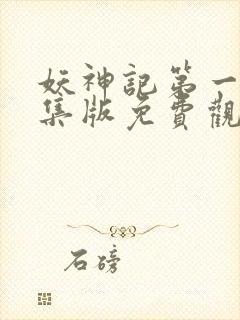 妖神記第一
集版免費觀
石磅